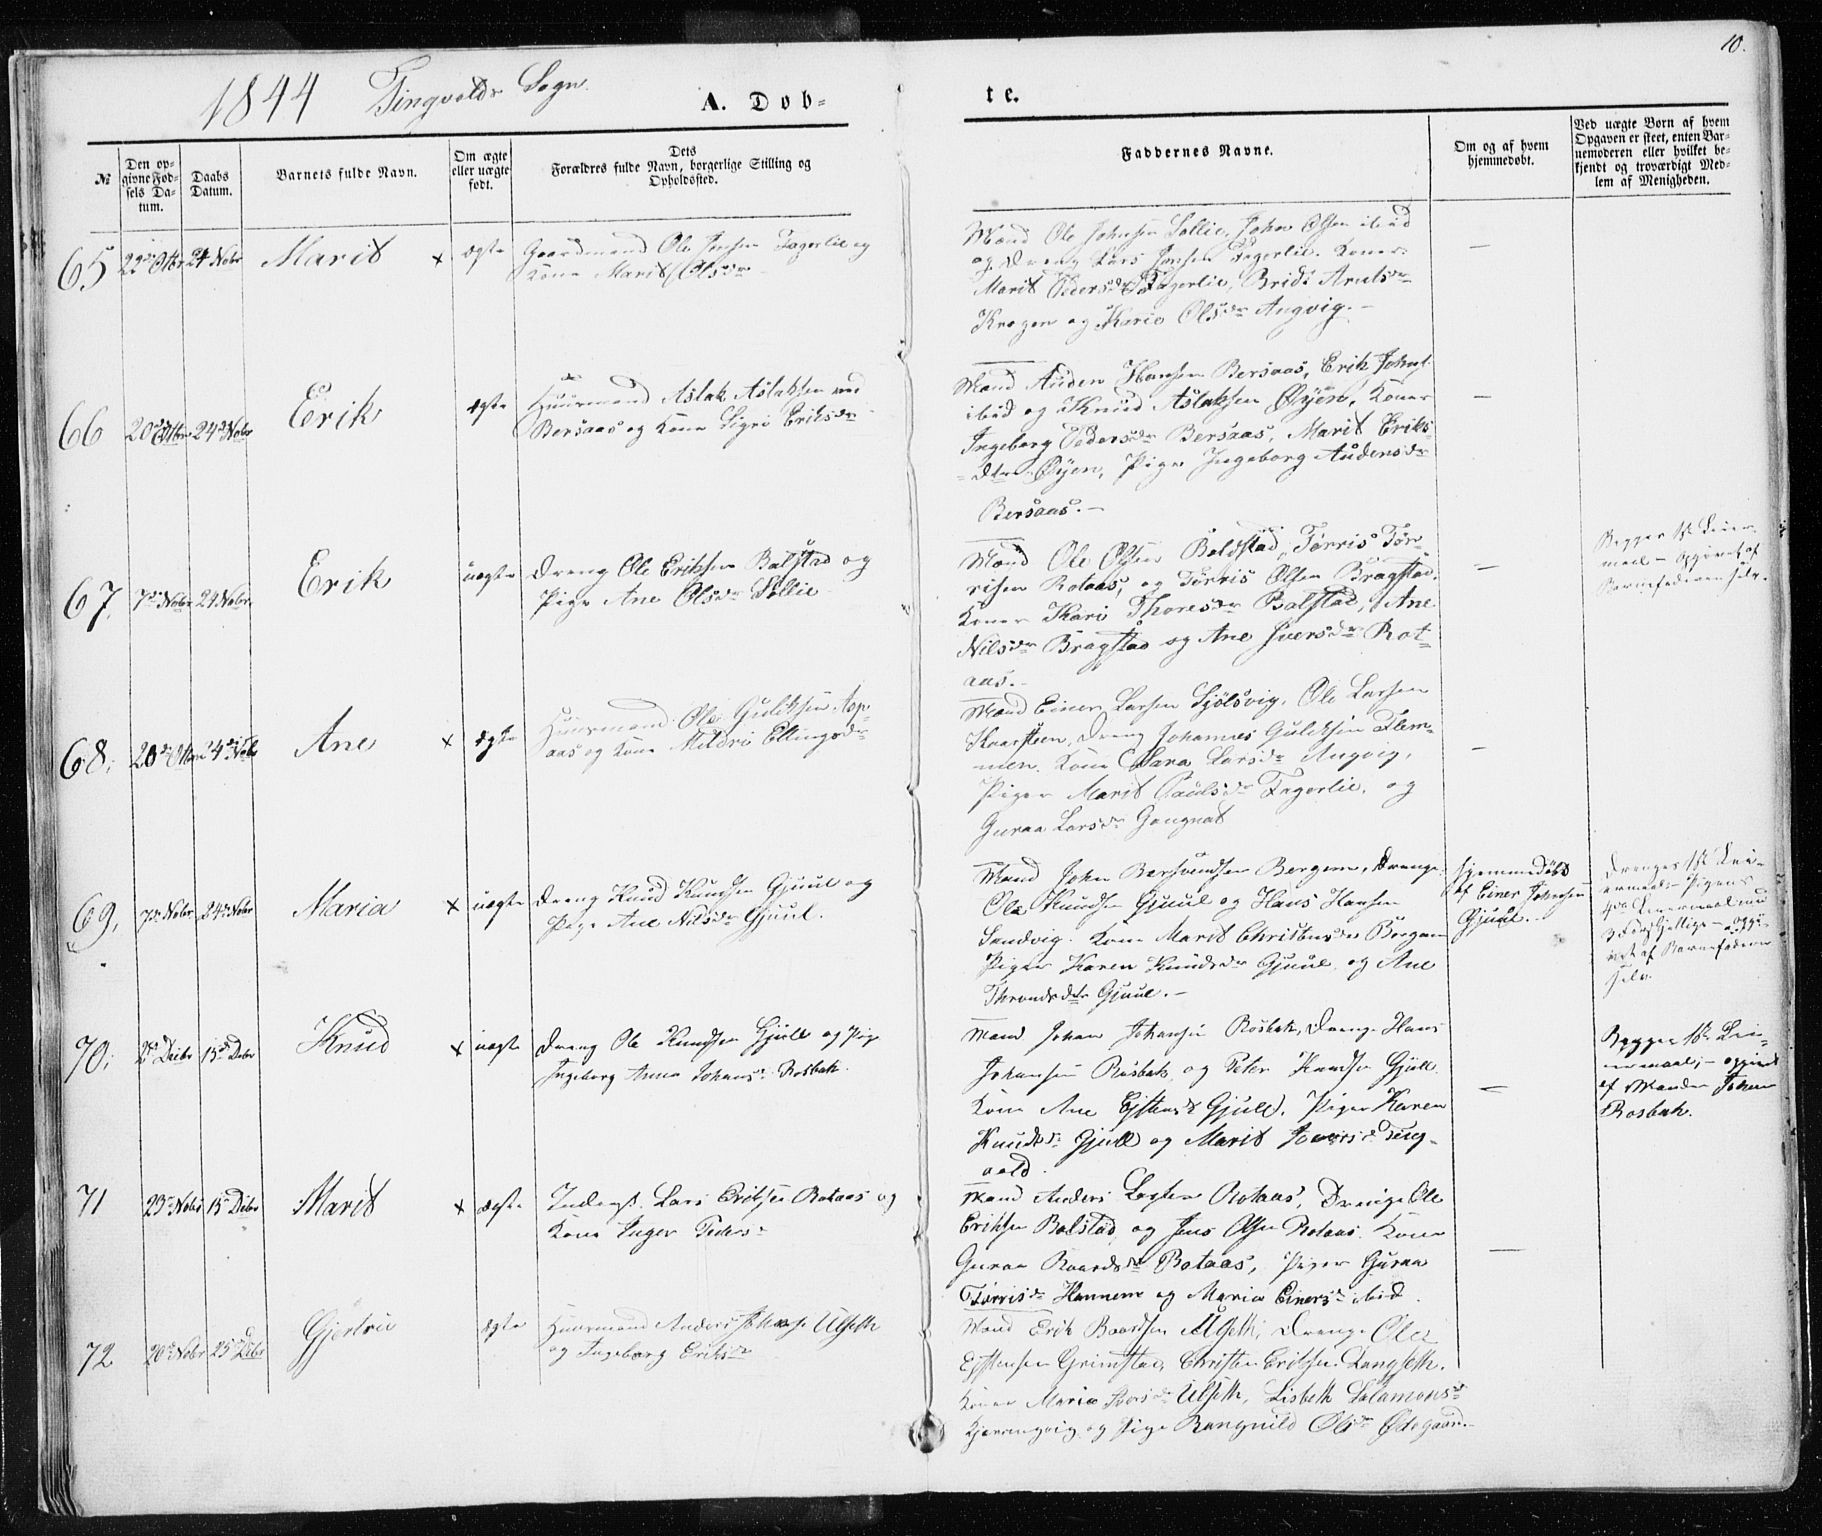 10.
1844 Tingvolds Sogn.
A. Døb-
te.
No
Den opgivne Fødsels Datum.
Daabs Datum.
Barnets fulde Navn.
Om ægte eller uægte født.
Dets Forældres fulde Navn, borgerlige Stilling og Opholdssted.
Faddernes Navne.
Om og af hvem hjemmedøbt.
Ved uægte Børn af hvem Opgaven er skeet, enten Barnemoderen eller hvilket bekjendt og troværdigt Medlem af Menigheden.
65 22de Octbr 24 Novbr Marit x ægte
Gaardmand Ole Jonsen Fagerlie og
Kone Marit Olsdr
Mænd Ole Johnsen Sollie, John Olsen ibid
og Dreng Lars Jonsen Fagerlie. Koner:
Marit Pedersdr Fagerlie, Bridt Arntsdr
Krogen og Kario Olsdr Angvig.-
-
66 20de Octbr 24de Novbr Erik ægte
Huusmand Aslak Aslaksen ved
Bersaas og Kone Sigri Eriksdr
Mænd Auden Hansen Bersaas, Erik Johns.
ibid og Knud Aslaksen Øyen, Koner
Ingeborg Pedersdr Bersaas, Marit Eriks-
-dtr Øyen, Pige Ingeborg Audensdr
Bersaas.-
-
67. 7de Novbr 24 Novbr. Erik uægte
Dreng Ole Eriksen Balstad og
Pige Ane Olsdr Sollie
Mænd Ole Olsen Boldstad, Tørris Tør-
risen Rotaas, og Tørris Olsen Bragstad.
Koner Kari Thoresdr Balstad, Ane
Nilsdr Bragstad og Ane Iversdr Rot-
aas.-
-
Begges 1ste Leier-
maal - opgivet af
Barnefaderen selv.
68. 20de Octbr 24de Novbr Ane x ægte
Huusmand Ole Guldksen Asp-
aas og Kone Mildri Ellingsdr
Mænd Einer Larsen Sjølsvig, Ole Larsen
Kaarsteen, Dreng Johannes Guldksen Flem-
men. Kone Sara Larsdr Angvig,
Piger Marit Paulsdr Fagerlie, og
Guraa Larsdr Gangnat
-
69. 7de Novbr 24de Novbr Maria x uægte
Dreng Knud Knudsen Gjuul og
Pige Ane Nilsdr Gjuul.
Mænd John Bersvendsen Bergem, Drenge
Ole Knudsen Gjuul og Hans Hansen
Sandvig. Kone Marit Christensdr Bergem
Piger Karen Knudsdr Gjuul og Ane
Throndsdtr Gjuul.-
Hjemmedøbt
af Einer Johnsen
Gjuul.
Drengens 1ste Lei-
ermaal - Pigens
4de Leiermaal med
3 forskjellige - opgi-
vet af Barnefaderen
selv.
70. 2de Decbr 15de Decbr Knud x uægte
Dreng Ole Knudsen Gjull og Pige
Ingeborg Anna Johansdr Rosbak.
Mænd Johan Johansen Rosbak, Drenge Hans
Johansen Rosbak og Peter Knudsen Gjull.
Kone Ane Ejstensdr Gjull. Piger Karen
Knudsdr Gjull og Marit Iversdr Ting-
vold.
-
Begges 1ste Lei-
ermaal; - opgivet
af Manden Johan
Rosbak.
71 23de Novbr 15de Decbr Marit x ægte
Inderst. Lars Eriksen Rotaas og
Kone Inger Pedersdr
Mænd Anders Rotaas, Drenge Ole
Eriksen Balstad, og Jens Olsen Rotaas. Kone
Guraa Baardsdr Rotaas, Piger Guraa
Tørrisdr Hannem og Maria Einersdr ibid.
-
72 20de Novbr 25de Decbr Gjertrui ægte
Huusmand Anders Johns. Ulseth
og Ingeborg Eriksdr
Mænd Erik Baardsen Ulseth, Drenge Ole
Ejstensen Grimstad, Christen Eriksen Langseth.
Koner Maria Iversdr Ulseth, Lisbeth Salamonsdr
Kjerringvig og Pige Rangnild Olsdr Ødegaard.-